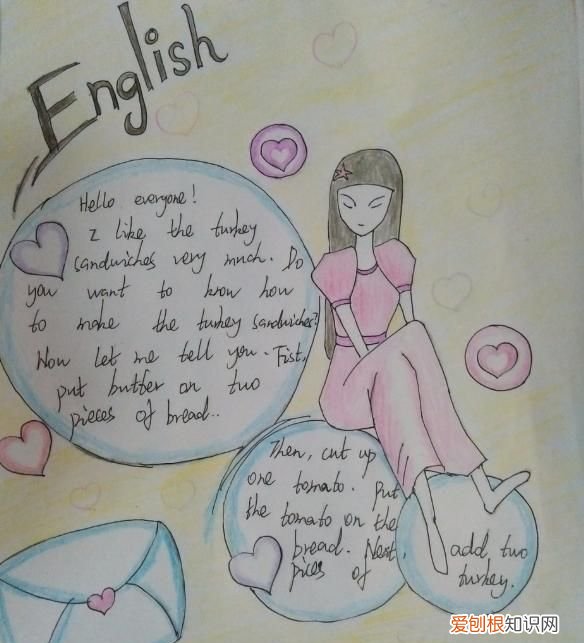 English
Hello everyone!
I like the turkey
sandwiches very much. Do
you want to know how
to make the turkey sandwiches?
Now let me tell you. Fist,
put butter on two
pieces of bread..
Then, cut up
one tomato. Put
the tomato on the
bread. Next,
pices of
add two
turkey.
爱刨根知识网